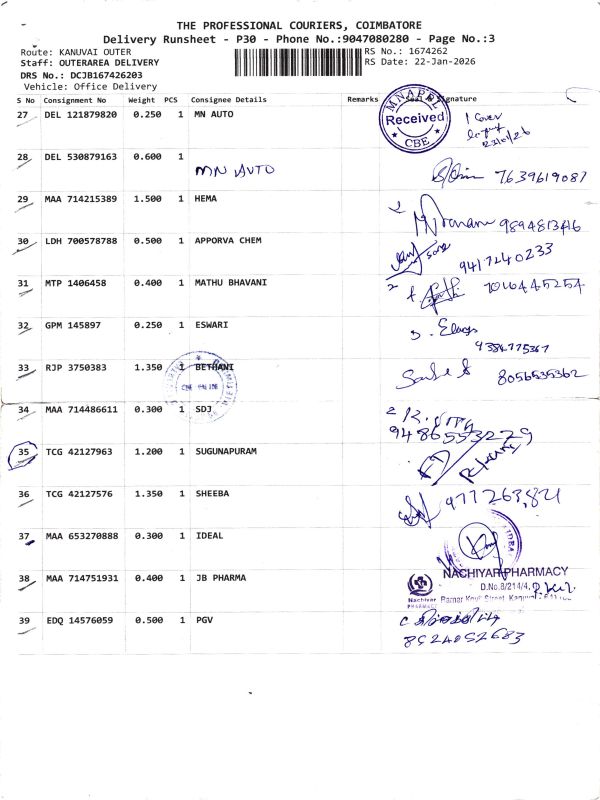 THE PROFESSIONAL COURIERS, COIMBATORE
Delivery Runsheet - P30 - Phone No.:9047080280 - Page No.:3
Route: KANUVAI OUTER
RS No.: 1674262
Staff: OUTERAREA DELIVERY
RS Date: 22-Jan-2026
DRS No.: DCJB167426203
Vehicle: Office Delivery
S No Consignment No Weight PCS Consignee Details Remarks Signature
27 DEL 121879820 0.250 1 MN AUTO
Received
CBE
1 Cover
28 DEL 530879163 0.600 1
MN AUTO
7639619087
29 MAA 714215389 1.500 1 HEMA
9894813416
30 LDH 700578788 0.500 1 APPORVA CHEM
9417240233
31 MTP 1406458 0.400 1 MATHU BHAVANI
32 GPM 145897 0.250 1 ESWARI
33 RJP 3750383 1.350 1 BETHANI
8056535362
34 MAA 714486611 0.300 1 SDJ
9486553229
35 TCG 42127963 1.200 1 SUGUNAPURAM
36 TCG 42127576 1.350 1 SHEEBA
37 MAA 653270888 0.300 1 IDEAL
38 MAA 714751931 0.400 1 JB PHARMA
NACHIYAR PHARMACY
D.No.8/214/4,
Nachiyar
PHARMACY
39 EDQ 14576059 0.500 1 PGV
8524052683